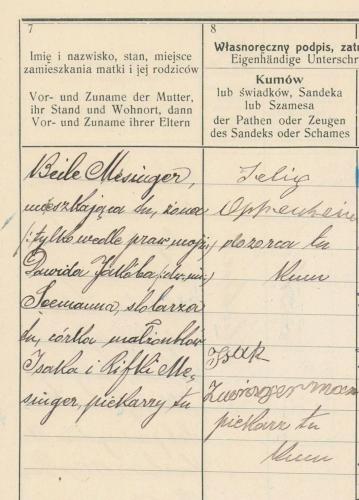 7
Imię i nazwisko, stan, miejsce
zamieszkania matki i jej rodziców
Vor- und Zuname der Mutter,
ihr Stand und Wohnort, dann
Vor- und Zuname ihrer Eltern
8
Własnoręczny podpis, zatr
Eigenhändige Unterschr
Kumów
lub świadków, Sandeka
lub Szamesa
der Pathen oder Zeugen
des Sandeks oder Schames
Beile Mesinger,
mieszkająca tu, żona
(: tylko wedle praw. mojż.
Dawida Jakóba
Seemanna, stolarza
tu, córka małżonków
Isaka i Rifki Me-
singer, piekarzy tu
Felig
Oppenheim
dozorca tu
Kum
Isak
piekarz tu
Kum